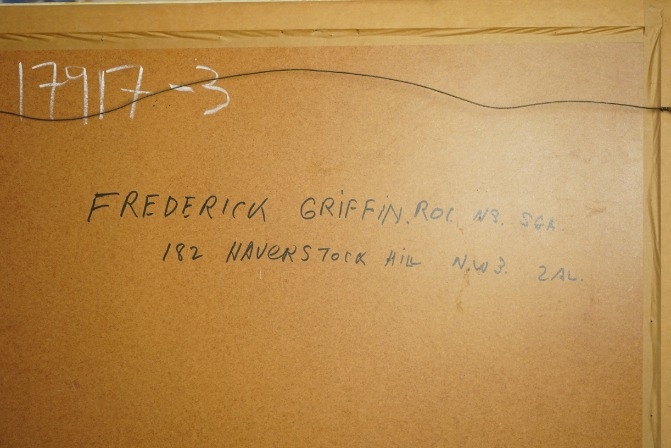 17917-3
FREDERICK GRIFFIN. ROI. NS. SGA.
182 HAVERSTOCK HILL N.W3. 2AL.